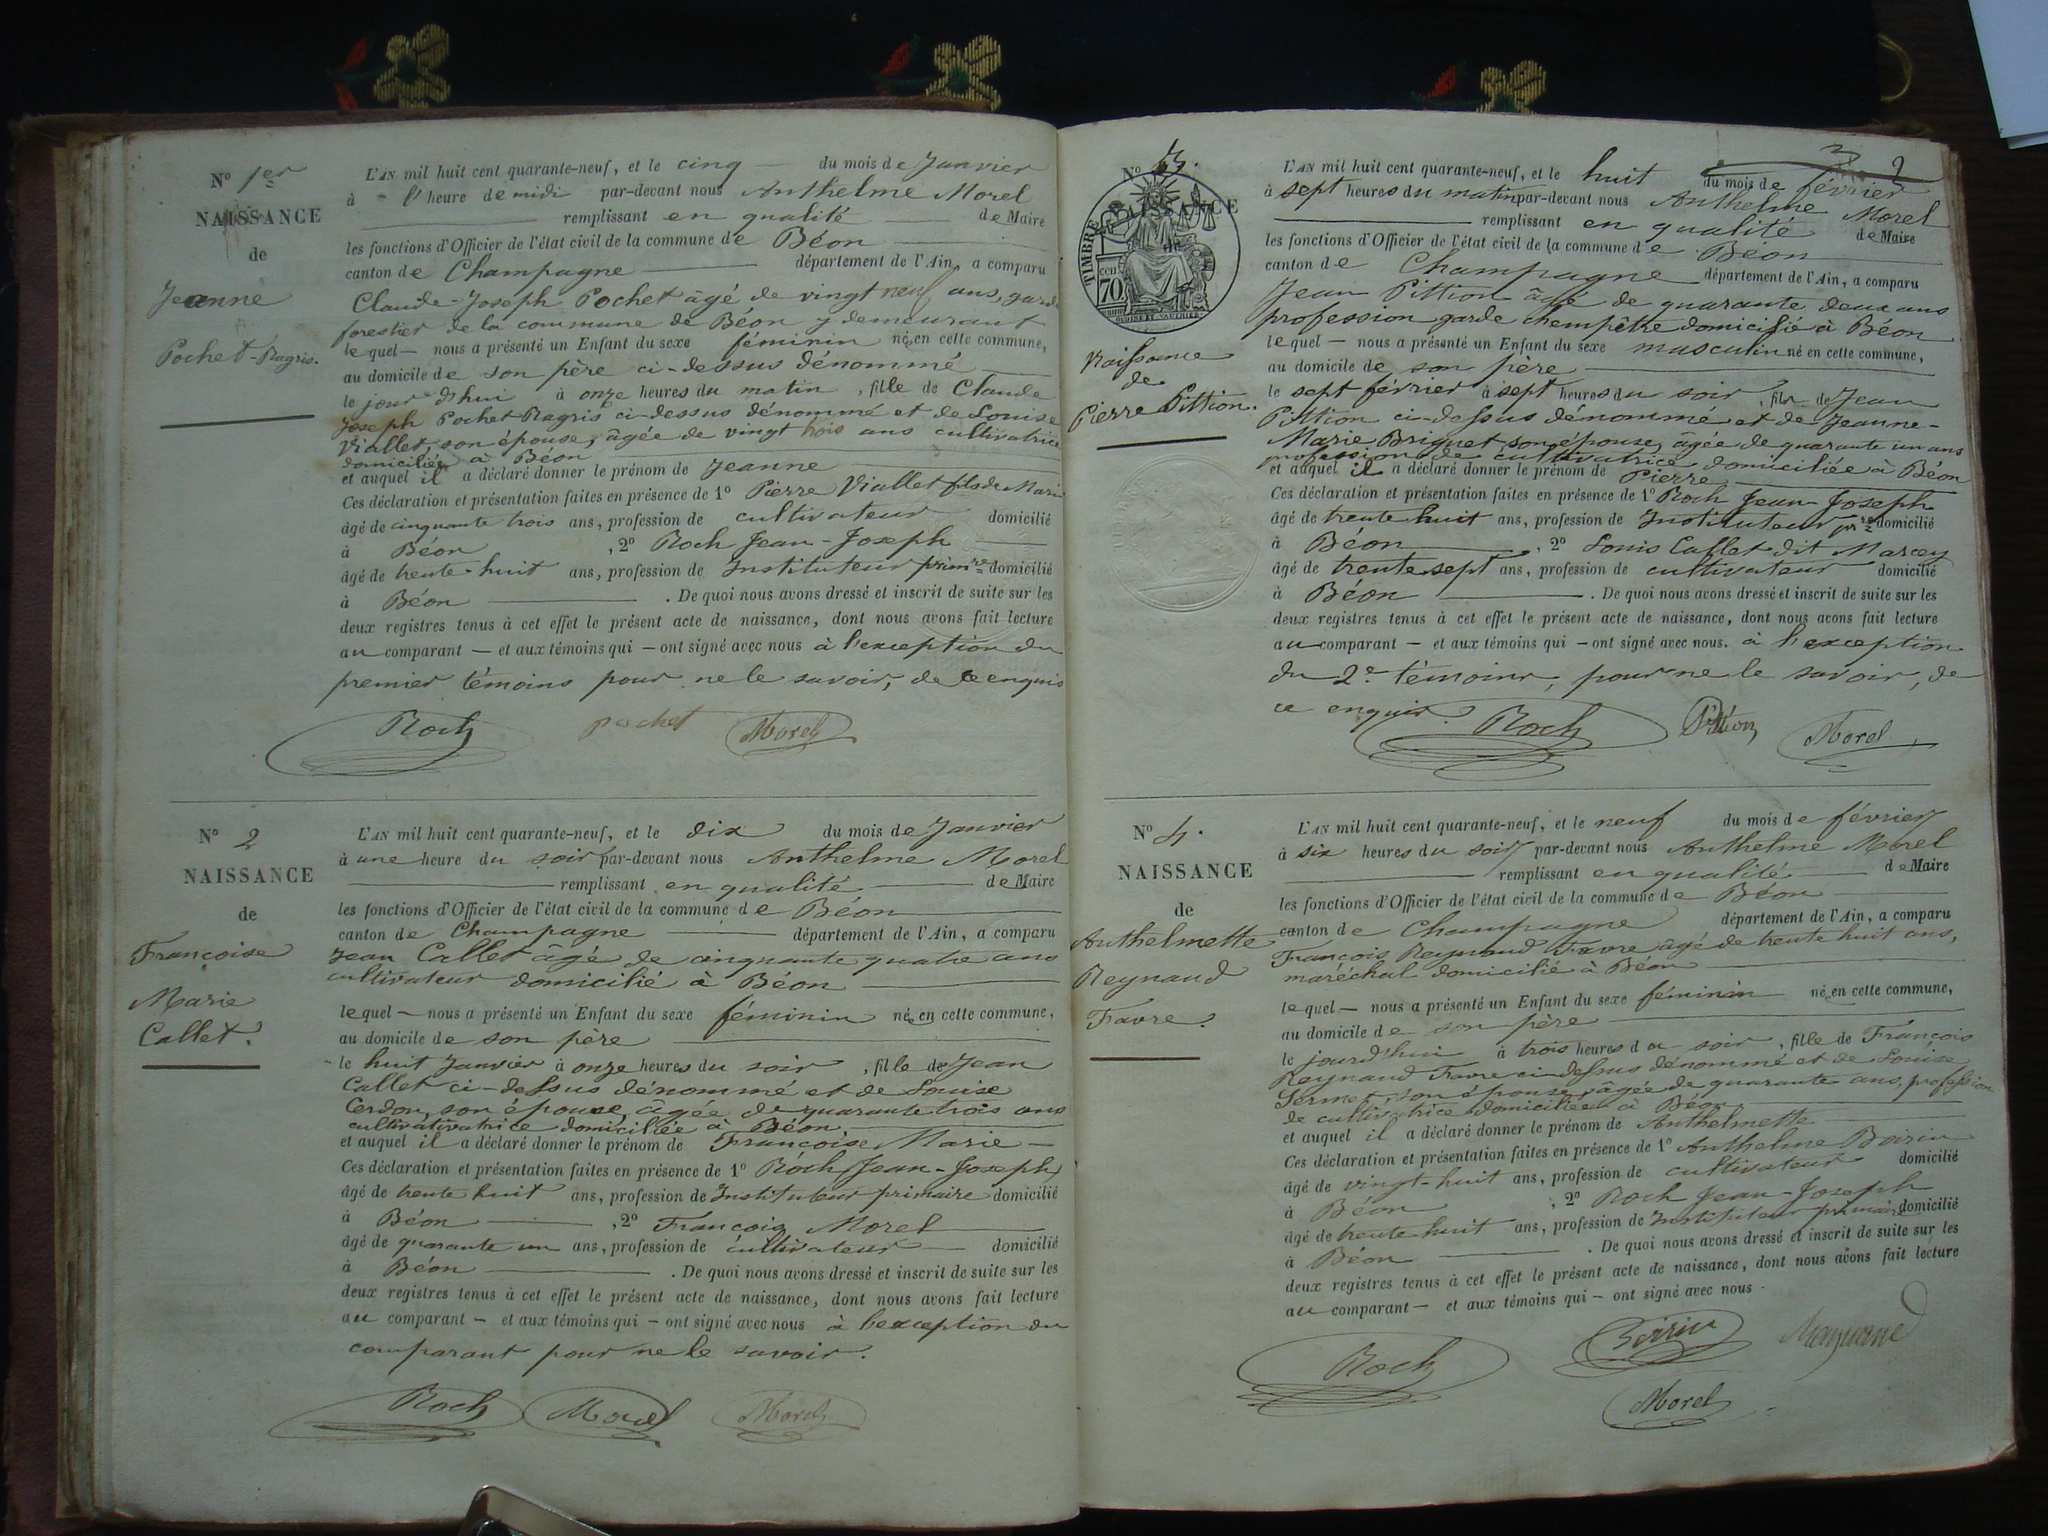 N° 1er
NAISSANCE
de
Jeanne
Pochet-Ragris.
L'AN mil huit cent quarante-neuf, et le cinq du mois de Janvier
à l'heure de midi par-devant nous Anthelme Morel
remplissant en qualité de Maire
les fonctions d'Officier de l'état civil de la commune de Béon
canton de Champagne département de l'Ain, a comparu
Claude-Joseph Pochet âgé de vingt neuf ans, garde
forestier de la commune de Béon y demeurant
lequel — nous a présenté un Enfant du sexe féminin née en cette commune,
au domicile de son père ci-dessus dénommé
le jour d'hui à onze heures du matin, fille de Claude
Joseph Pochet Ragris ci-dessus dénommé et de Louise
Viallet, son épouse, âgée de vingt trois ans cultivatrice
domiciliée à Béon
et auquel il a déclaré donner le prénom de Jeanne
Ces déclaration et présentation faites en présence de 1° Pierre Viallet fils de Marie
âgé de cinquante trois ans, profession de cultivateur domicilié
à Béon, 2° Roch Jean-Joseph
âgé de trente-huit ans, profession de Instituteur primre domicilié
à Béon. De quoi nous avons dressé et inscrit de suite sur les
deux registres tenus à cet effet le présent acte de naissance, dont nous avons fait lecture
au comparant — et aux témoins qui — ont signé avec nous à l'exception du
premier témoins pour ne le savoir, de ce enquis
Roch pochet Morel
N° 2
NAISSANCE
de
Françoise
Marie
Callet.
L'AN mil huit cent quarante-neuf, et le dix du mois de Janvier
à une heure du soir par-devant nous Anthelme Morel
remplissant en qualité de Maire
les fonctions d'Officier de l'état civil de la commune de Béon
canton de Champagne département de l'Ain, a comparu
Jean Callet âgé de cinquante quatre ans
cultivateur domicilié à Béon
lequel — nous a présenté un Enfant du sexe féminin née en cette commune,
au domicile de son père
le huit Janvier à onze heures du soir, fille de Jean
Callet ci-dessus dénommé et de Louise
Cerdon, son épouse, âgée de quarante trois ans
cultivativatrice domiciliée à Béon
et auquel il a déclaré donner le prénom de Françoise Marie —
Ces déclaration et présentation faites en présence de 1° Roch Jean-Joseph
âgé de trente huit ans, profession de Instituteur primaire domicilié
à Béon, 2° François Morel
âgé de quarante un ans, profession de cultivateur domicilié
à Béon. De quoi nous avons dressé et inscrit de suite sur les
deux registres tenus à cet effet le présent acte de naissance, dont nous avons fait lecture
au comparant — et aux témoins qui — ont signé avec nous à l'exception du
comparant pour ne le savoir.
Roch Morel Morel
2
N° 3.
NAISSANCE
de
TIMBRE
70
Naissance
de
Pierre Pittion.
L'AN mil huit cent quarante-neuf, et le huit du mois de février
à sept heures du matin par-devant nous Anthelme Morel
remplissant en qualité de Maire
les fonctions d'Officier de l'état civil de la commune de Béon
canton de Champagne département de l'Ain, a comparu
Jean Pittion âgé de quarante deux ans
profession garde chempêtre domicilié à Béon
lequel — nous a présenté un Enfant du sexe masculin né en cette commune,
au domicile de son père
le sept février à sept heures du soir, fils de Jean
Pittion ci-dessus dénommé et de Jeanne-
Marie Briquet son épouse, âgée de quarante un ans
profession de cultivatrice domiciliée à Béon
et auquel il a déclaré donner le prénom de Pierre
Ces déclaration et présentation faites en présence de 1° Roch Jean-Joseph
âgé de trente huit ans, profession de Instituteur pre domicilié
à Béon, 2° Louis Callet dit Marcey
âgé de trente sept ans, profession de cultivateur domicilié
à Béon. De quoi nous avons dressé et inscrit de suite sur les
deux registres tenus à cet effet le présent acte de naissance, dont nous avons fait lecture
au comparant — et aux témoins qui — ont signé avec nous. à l'exception
du 2e témoins, pour ne le savoir, de
ce enquis. Roch Pittion Morel
N° 4.
NAISSANCE
de
Anthelmette
Reynaud
Favre.
L'AN mil huit cent quarante-neuf, et le neuf du mois de février
à six heures du soir par-devant nous Anthelme Morel
remplissant en qualité de Maire
les fonctions d'Officier de l'état civil de la commune de Béon
canton de Champagne département de l'Ain, a comparu
François Reynaud Favre âgé de trente huit ans,
maréchal domicilié à Béon
lequel — nous a présenté un Enfant du sexe féminin née en cette commune,
au domicile de son père
le jourd'hui à trois heures du soir, fille de François
Reynaud Favre ci-dessus dénommé et de Louise
Sermet, son épouse, âgée de quarante ans, profession
de cultivatrice domiciliée à Béon
et auquel il a déclaré donner le prénom de Anthelmette
Ces déclaration et présentation faites en présence de 1° Anthelme Boirin
âgé de vingt-huit ans, profession de cultivateur domicilié
à Béon, 2° Roch Jean-Joseph
âgé de trente huit ans, profession de Instituteur primaire domicilié
à Béon. De quoi nous avons dressé et inscrit de suite sur les
deux registres tenus à cet effet le présent acte de naissance, dont nous avons fait lecture
au comparant — et aux témoins qui — ont signé avec nous.
Roch
Morel